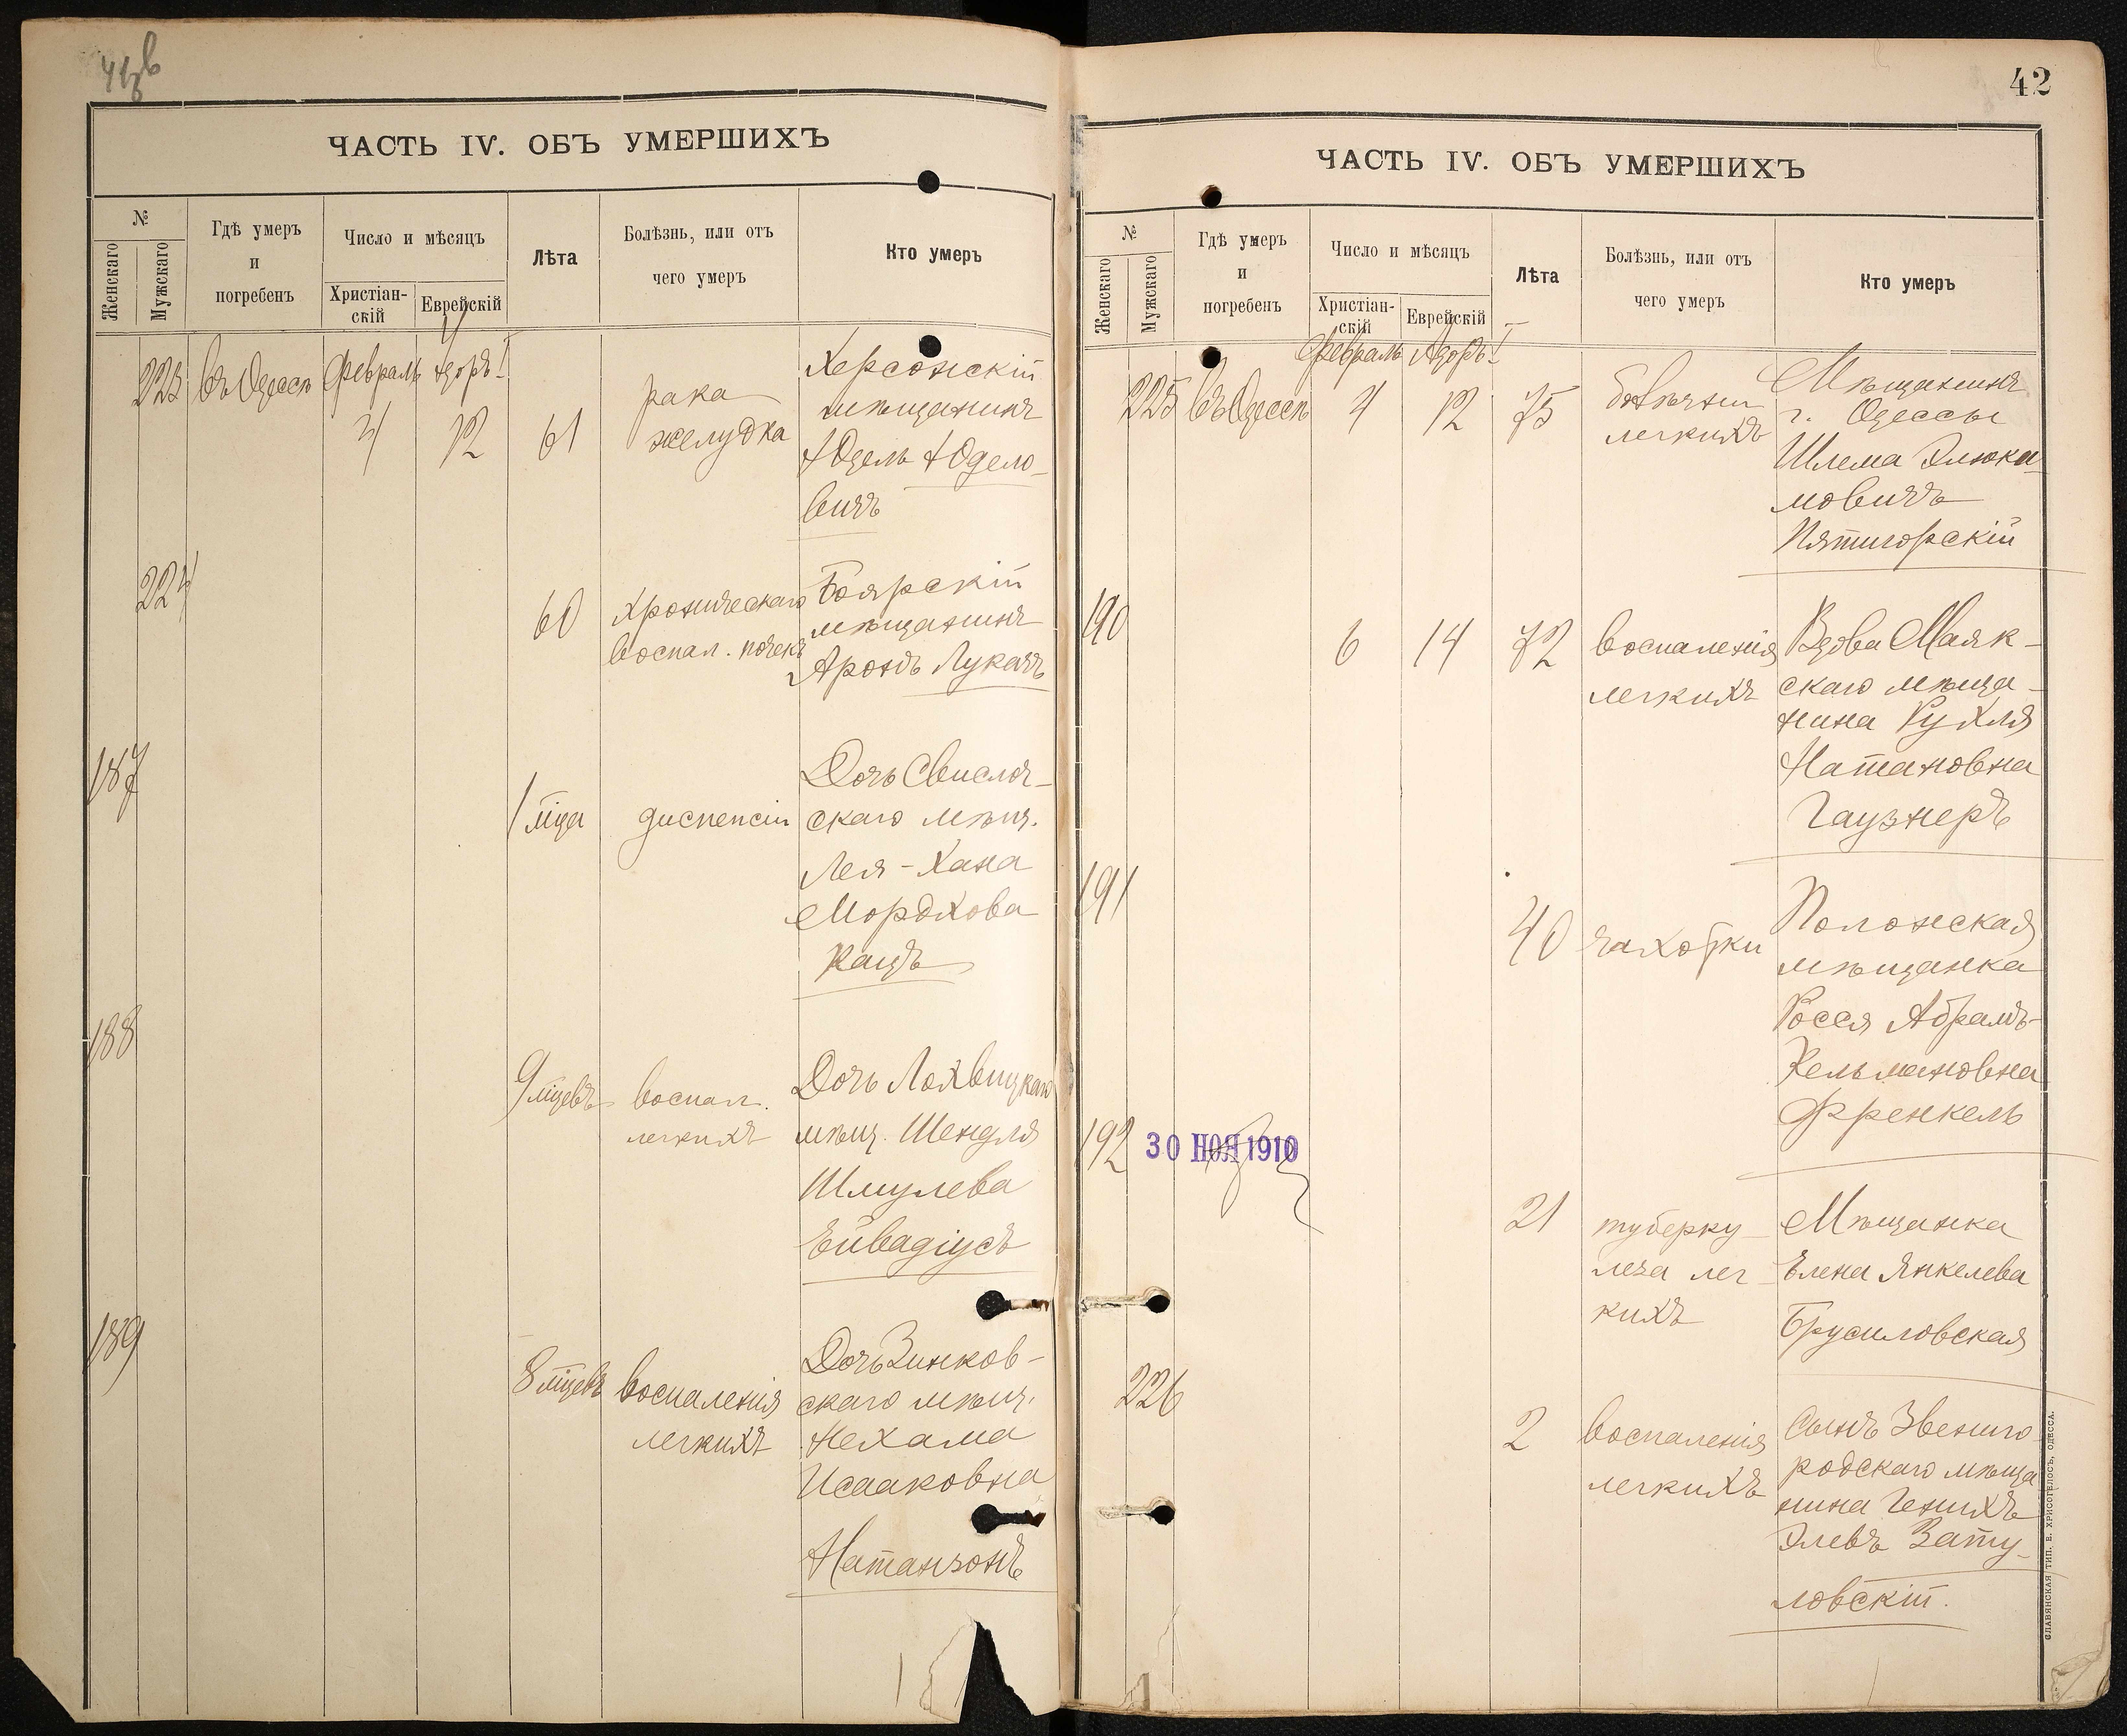 ЧАСТЬ IV. ОБЪ УМЕРШИХЪ
№
Женскаго
Мужскаго
Гдѣ умеръ
и
погребенъ
Число и мѣсяцъ
Христіан-
скій
Еврейскій
Лѣта
Болѣзнь, или отъ
чего умеръ
Кто умеръ
223 въ Одессѣ Февраль Адоръ I
4 12 61
рака
желудка
Херсонскій
мѣщанинъ
Юдель Юдело-
вичъ
224
60
хроническаго
воспал. почекъ
Боярскій
мѣщанинъ
Аронъ Лукачъ
187
1 мѣца
диспепсіи
Дочь Свислоч-
скаго мѣщ.
Лея-Хана
Мордкова
Кацъ
188
9 мцевъ
воспал.
легкихъ
Дочь Лохвицкаго
мѣщ. Шендля
Шмулева
Ейвадіусъ
189
8 мцевъ
воспаленія
легкихъ
Дочь Зинков-
скаго мѣщ.
Нехама
Исааковна
Натанзонъ
42
ЧАСТЬ IV. ОБЪ УМЕРШИХЪ
№
Женскаго
Мужскаго
Гдѣ умеръ
и
погребенъ
Число и мѣсяцъ
Христіан-
скій
Еврейскій
Лѣта
Болѣзнь, или отъ
чего умеръ
Кто умеръ
Февраль Адоръ I
225 въ Одессѣ 4 12 75
легкихъ
Мѣщанинъ
г. Одессы
Шлема Элюка-
мовичъ
Пятигорскій
190
6 14 72
воспаленія
легкихъ
Вдова Маяк-
скаго мѣща-
нина Рухля
Натановна
Гаузнеръ
191
40 чахотки
Полонская
мѣщанка
Росся Абрамъ-
Кельмановна
Френкель
192
30 НОЯ 1910
21
туберку-
леза лег-
кихъ
Мѣщанка
Елена Янкелева
Брусиловская
226
2
воспаленія
легкихъ
Сынъ Звениго-
родскаго мѣща
нина Генихъ
Элевъ Зату-
ловскій.
СЛАВЯНСКАЯ ТИП. Е. ХРИСОГЕЛОСЪ, ОДЕССА.